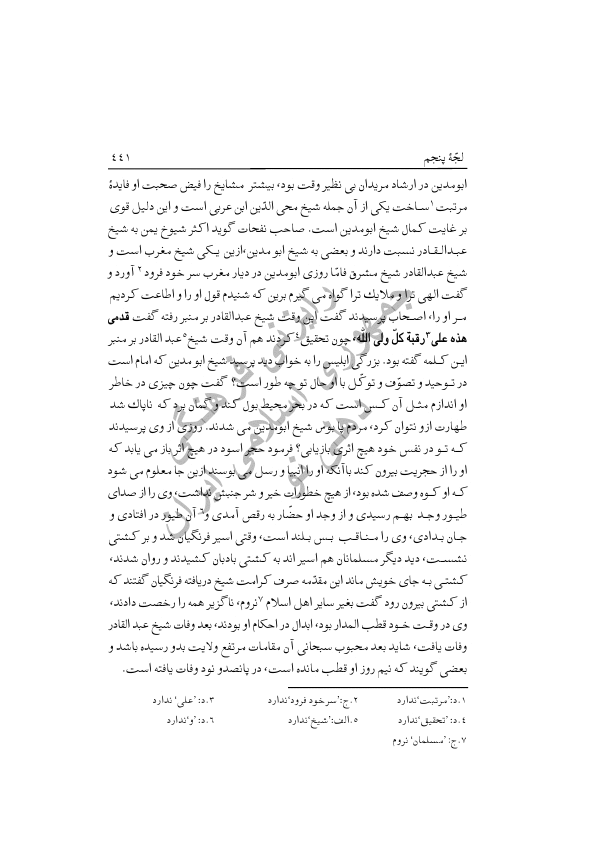 لجّهٔ پنجم ۴۴۱
ابومدین در ارشاد مریدان بی نظیر وقت بود، بیشتر مشایخ را فیض صحبت او فایدهٔ
مرتبت۱ ساخت یکی از آن جمله شیخ محی الدّین ابن عربی است و این دلیل قوی
بر غایت کمال شیخ ابومدین است. صاحب نفحات گوید اکثر شیوخ یمن به شیخ
عبدالقادر نسبت دارند و بعضی به شیخ ابو مدین،ازین یکی شیخ مغرب است و
شیخ عبدالقادر شیخ مشرق فامّا روزی ابومدین در دیار مغرب سر خود فرود۲ آورد و
گفت الهی ترا و ملایك ترا گواه می گیرم برین که شنیدم قول او را و اطاعت کردیم
مر او را، اصحاب پرسیدند گفت این وقت شیخ عبدالقادر بر منبر رفته گفت قدمی
هذه علی۳ رقبة کلّ ولی الله، چون تحقیق۴ کردند هم آن وقت شیخ۵ عبد القادر بر منبر
این کلمه گفته بود. بزرگی ابلیس را به خواب دید پرسید شیخ ابو مدین که امام است
در توحید و تصوّف و توکّل با او حال تو چه طور است؟ گفت چون چیزی در خاطر
او اندازم مثل آن کس است که در بحر محیط بول کند و گمان برد که ناپاك شد
طهارت ازو نتوان کرد، مردم پا بوس شیخ ابومدین می شدند. روزی از وی پرسیدند
که تو در نفس خود هیچ اثری بازیابی؟ فرمود حجر اسود در هیچ اثر باز می یابد که
او را از حجریت بیرون کند باآنکه او را انبیا و رسل می بوسند ازین جا معلوم می شود
که او کوه وصف شده بود، از هیچ خطورات خیر و شر جنبش نداشت، وی را از صدای
طیور وجد بهم رسیدی و از وجد او حضّار به رقص آمدی و۶ آن طیور در افتادی و
جان بدادی، وی را مناقب بس بلند است، وقتی اسیر فرنگیان شد و بر کشتی
نشست، دید دیگر مسلمانان هم اسیر اند به کشتی بادبان کشیدند و روان شدند،
کشتی به جای خویش ماند این مقدّمه صرف کرامت شیخ دریافته فرنگیان گفتند که
از کشتی بیرون رود گفت بغیر سایر اهل اسلام۷ نروم، ناگزیر همه را رخصت دادند،
وی در وقت خود قطب المدار بود، ابدال در احکام او بودند، بعد وفات شیخ عبد القادر
وفات یافت، شاید بعد محبوب سبحانی آن مقامات مرتفع ولایت بدو رسیده باشد و
بعضی گویند که نیم روز او قطب مانده است، در پانصدو نود وفات یافته است.
۱.د:'مرتبت'ندارد ۲.ج:'سرخود فرود'ندارد ۳.د:'علی' ندارد
۴.د:'تحقیق'ندارد ۵.الف:'شیخ'ندارد ۶.د:'و'ندارد
۷.ج:'مسلمان' نروم